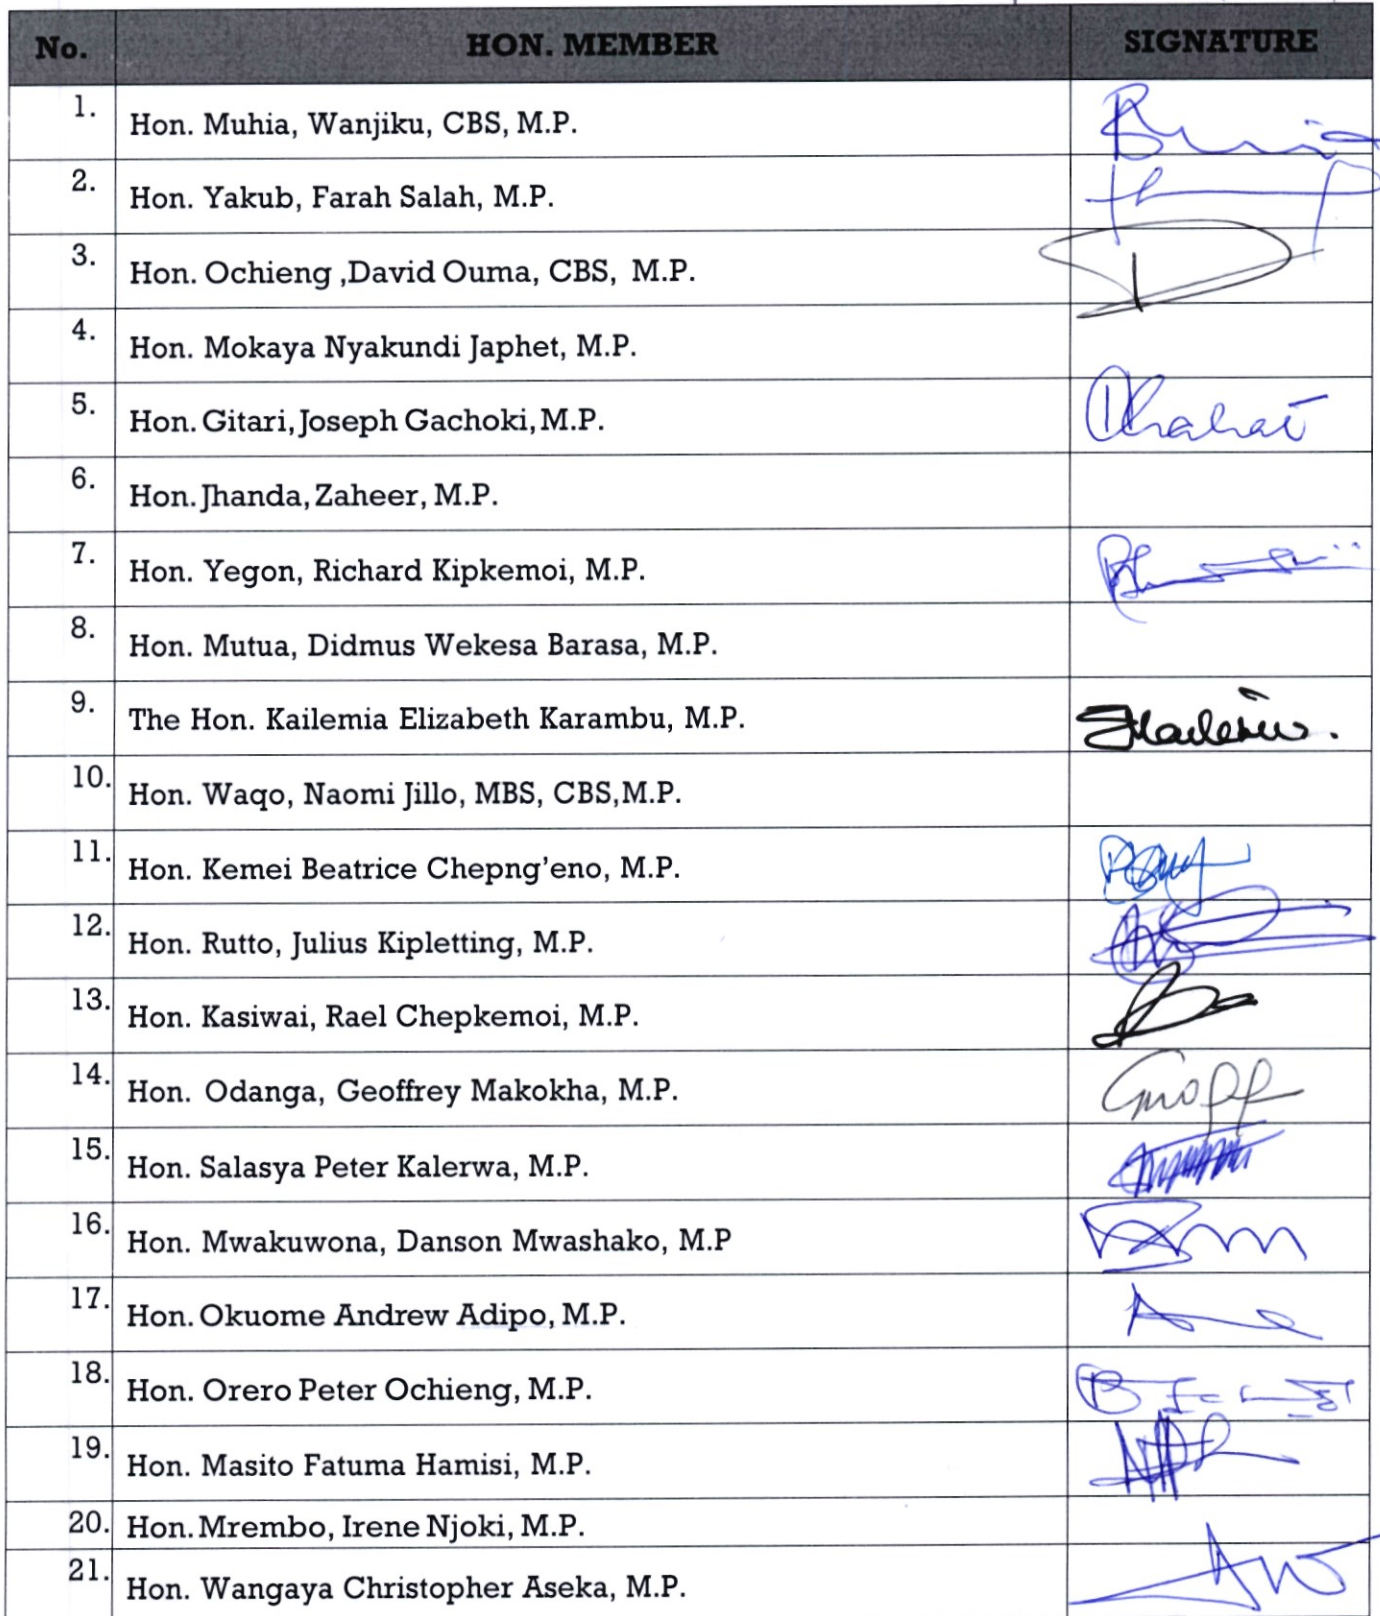 No. HON. MEMBER SIGNATURE
1. Hon. Muhia, Wanjiku, CBS, M.P.
2. Hon. Yakub, Farah Salah, M.P.
3. Hon. Ochieng ,David Ouma, CBS, M.P.
4. Hon. Mokaya Nyakundi Japhet, M.P.
5. Hon. Gitari, Joseph Gachoki, M.P.
6. Hon. Jhanda, Zaheer, M.P.
7. Hon. Yegon, Richard Kipkemoi, M.P.
8. Hon. Mutua, Didmus Wekesa Barasa, M.P.
9. The Hon. Kailemia Elizabeth Karambu, M.P.
10. Hon. Waqo, Naomi Jillo, MBS, CBS,M.P.
11. Hon. Kemei Beatrice Chepng'eno, M.P.
12. Hon. Rutto, Julius Kipletting, M.P.
13. Hon. Kasiwai, Rael Chepkemoi, M.P.
14. Hon. Odanga, Geoffrey Makokha, M.P.
15. Hon. Salasya Peter Kalerwa, M.P.
16. Hon. Mwakuwona, Danson Mwashako, M.P
17. Hon. Okuome Andrew Adipo, M.P.
18. Hon. Orero Peter Ochieng, M.P.
19. Hon. Masito Fatuma Hamisi, M.P.
20. Hon. Mrembo, Irene Njoki, M.P.
21. Hon. Wangaya Christopher Aseka, M.P.